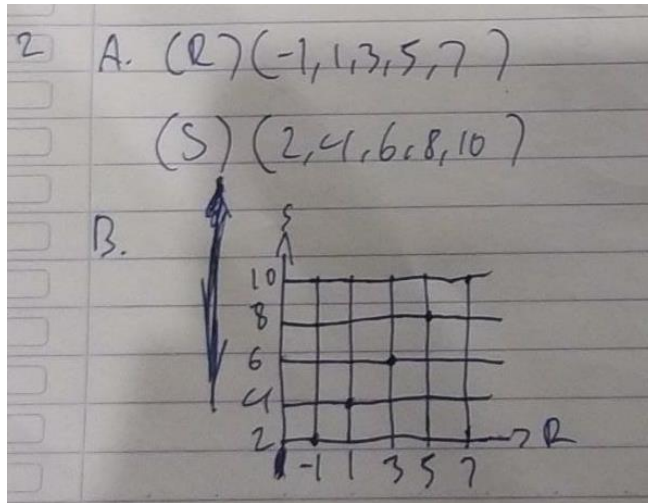 2 A. (R) (-1, 1, 3, 5, 7)
(S) (2, 4, 6, 8, 10)
B.
S
10
8
6
4
2 R
-1 1 3 5 7